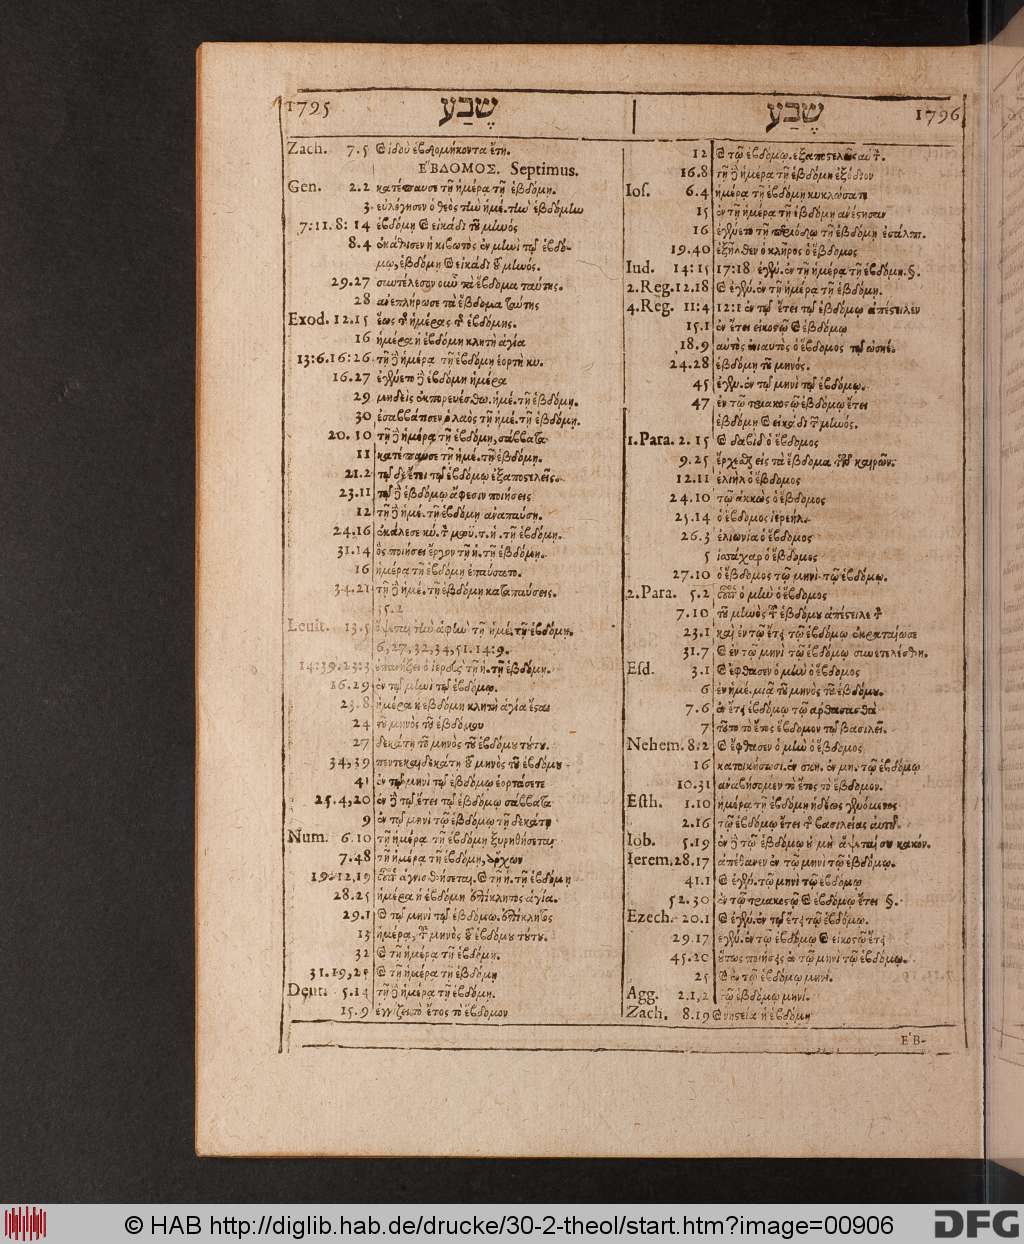 1795 שֶׁבַע שֶׁבַע 1796
Zach. 7.5 ἰδοὺ ἑβδομήκοντα ἔτη.
ἝΒΔΟΜΟΣ. Septimus.
Gen. 2.2 κατέπαυσε τῇ ἡμέρα τῇ ἑβδόμη.
3 εὐλόγησεν ὁ θεὸς τὴν ἡμέ. τὴν ἑβδόμην
7:11.8: 14 ἑβδόμῃ καὶ εἰκάδι τοῦ μηνός
8.4 ἐκάθισεν ἡ κιβωτὸς ἐν μηνὶ τῷ ἑβδό-
μῳ, ἑβδόμῃ καὶ εἰκάδι τοῦ μηνός.
29.27 συντέλεσον οὖν τὰ ἕβδομα ταύτης.
28 ἀνεπλήρωσε τὰ ἕβδομα ταύτης
Exod. 12.15 ἕως τῆς ἡμέρας τῆς ἑβδόμης.
16 ἡμέρα ἡ ἑβδόμη κλητὴ ἁγία
13:6.16:26 τῇ δὲ ἡμέρᾳ τῇ ἑβδόμῃ ἑορτὴ κυ.
16.27 ἐγένετο δὲ ἑβδόμῃ ἡμέρᾳ
29 μηδεὶς ἐκπορευέσθω. ἡμέ. τῇ ἑβδόμῃ.
30 ἐσαββάτισεν ὁ λαὸς τῇ ἡμέ. τῇ ἑβδόμῃ.
20. 10 τῇ δὲ ἡμέρᾳ τῇ ἑβδόμῃ, σάββατα
11 κατέπαυσε τῇ ἡμέ. τῇ ἑβδόμῃ.
21.2 τῷ δὲ ἔτει τῷ ἑβδόμῳ ἐξαποστελεῖς.
23.11 τῷ δὲ ἑβδόμῳ ἄφεσιν ποιήσεις
12 τῇ δὲ ἡμέ. τῇ ἑβδόμῃ ἀνάπαυση.
24.16 ἐκάλεσε κύ. τ μωϋ. τ. ἡ. τῇ ἑβδόμῃ.
31.14 ὃς ποιήσει ἔργον τῇ ἡ. τῇ ἑβδόμῃ.
16 ἡμέρᾳ τῇ ἑβδόμῃ ἐπαύσατο.
34.21 τῇ δὲ ἡμέ. τῇ ἑβδόμῃ καταπαύσεις.
35.2
Leuit. 13.5 ὄψεται τὴν ἁφὴν τῇ ἡμέ. τῇ ἑβδόμῃ.
6,27,32,34,51.14:9.
14:39.23:3 ἐπανήξει ὁ ἱερεὺς τῇ ἡ. τῇ ἑβδόμῃ.
16.29 ἐν τῷ μηνὶ τῷ ἑβδόμῳ.
23.8 ἡμέρα ἡ ἑβδόμη κλητὴ ἁγία ἔσται
24 τοῦ μηνὸς τοῦ ἑβδόμου
27 δεκάτῃ τοῦ μηνὸς τοῦ ἑβδόμου τούτου.
34,39 πεντεκαιδεκάτῃ τοῦ μηνὸς τοῦ ἑβδόμου
41 ἐν τῷ μηνὶ τῷ ἑβδόμῳ ἑορτάσετε
25.4,20 ἐν δὲ τῷ ἔτει τῷ ἑβδόμῳ σάββατα
9 ἐν τῷ μηνὶ τῷ ἑβδόμῳ τῇ δεκάτῃ
Num. 6.10 τῇ ἡμέρᾳ τῇ ἑβδόμῃ ξυρηθήσεται
7.48 τῇ ἡμέρᾳ τῇ ἑβδόμῃ, ἄρχων
19.12,19 ἁγνισθήσεται καὶ τῇ ἡ. τῇ ἑβδόμῃ
28.25 ἡμέρα ἡ ἑβδόμη ἐπίκλητος ἁγία.
29.1 καὶ τῷ μηνὶ τῷ ἑβδόμῳ. ἐπίκλητος
13 ἡμέρᾳ, τ μηνὸς τοῦ ἑβδόμου τούτου.
32 καὶ τῇ ἡμέρᾳ τῇ ἑβδόμῃ.
31.19,25 καὶ τῇ ἡμέρᾳ τῇ ἑβδόμῃ
Deut. 5.14 τῇ δὲ ἡμέρᾳ τῇ ἑβδόμῃ.
15.9 ἐγγίζει τὸ ἔτος τὸ ἕβδομον
12 καὶ τῷ ἑβδόμῳ. ἐξαποστελεῖς αὐτ.
16.8 τῇ δὲ ἡμέρᾳ τῇ ἑβδόμῃ ἐξόδιον
Ios. 6.4 ἡμέρᾳ τῇ ἑβδόμῃ κυκλώσατε
15 ἐν τῇ ἡμέρᾳ τῇ ἑβδόμῃ ἀνέστησαν
16 ἐγένετο τῇ περιόδῳ τῇ ἑβδόμῃ ἐσάλπι.
19.40 ἐξῆλθεν ὁ κλῆρος ὁ ἕβδομος
Iud. 14:15 17:18 ἐγέν. ἐν τῇ ἡμέρᾳ τῇ ἑβδόμῃ. §.
2.Reg. 12.18 καὶ ἐγέν. ἐν τῇ ἡμέρᾳ τῇ ἑβδόμῃ.
4.Reg. 11:4 12:1 ἐν τῷ ἔτει τῷ ἑβδόμῳ ἀπέστειλεν
15.1 ἐν ἔτει εἰκοστῷ καὶ ἑβδόμῳ
18.9 αὐτὸς ἐνιαυτὸς ὁ ἕβδομος τῷ ὡσηέ.
24.28 ἑβδόμῃ τοῦ μηνός.
45 ἐγέν. ἐν τῷ μηνὶ τῷ ἑβδόμῳ.
47 ἐν τῷ τριακοστῷ ἑβδόμῳ ἔτει
ἑβδόμῃ καὶ εἰκάδι τ μηνός.
1.Para. 2.15 καὶ δαβὶδ ὁ ἕβδομος
9.25 ἔρχεσθαι εἰς τὰ ἕβδομα τῶν καιρῶν.
12.11 ἐλιὴλ ὁ ἕβδομος
24.10 τῷ ἀκκὼς ὁ ἕβδομος
25.14 ὁ ἕβδομος ἰερεήλ.
26.3 ἐλιωνία ὁ ἕβδομος
5 ἰσσάχαρ ὁ ἕβδομος
27.10 ὁ ἕβδομος τῷ μηνὶ τῷ ἑβδόμῳ.
2.Para. 5.2 ὁ μὴν ὁ ἕβδομος
7.10 τοῦ μηνὸς τ ἑβδόμου ἀπέστειλε τ
23.1 καὶ ἐν τῷ ἔτει τῷ ἑβδόμῳ ἐκραταίωσε
31.7 καὶ ἐν τῷ μηνὶ τῷ ἑβδόμῳ συνετελέσθη.
Esd. 3.1 καὶ ἔφθασεν ὁ μὴν ὁ ἕβδομος
6 ἐν ἡμέ. μιᾷ τοῦ μηνὸς τοῦ ἑβδόμου.
7.6 ἐν ἔτει ἑβδόμῳ τῷ ἀρθασασθὰ
7 τοῦτο τὸ ἔτος ἕβδομον τῷ βασιλεῖ.
Nehem. 8.2 καὶ ἔφθασεν ὁ μὴν ὁ ἕβδομος
16 κατοικήσωσι. ἐν σκη. ἐν μη. τῷ ἑβδόμῳ
10.31 ἀναβήσομεν τὸ ἔτος τὸ ἕβδομον.
Esth. 1.10 ἡμέρᾳ τῇ ἑβδόμῃ ἡδέως γενόμενος
2.16 τῷ ἑβδόμῳ ἔτει τ βασιλείας αὐτοῦ.
Iob. 5.19 ἐν δὲ τῷ ἑβδόμῳ οὐ μὴ ἅψηταί σου κακόν.
Ierem. 28.17 ἀπέθανεν ἐν τῷ μηνὶ τῷ ἑβδόμῳ.
41.1 καὶ ἐγέν. τῷ μηνὶ τῷ ἑβδόμῳ
52.30 ἐν τῷ τριακοστῷ καὶ ἑβδόμῳ ἔτει §.
Ezech. 20.1 καὶ ἐγέν. ἐν τῷ ἔτει τῷ ἑβδόμῳ.
29.17 ἐγέν. ἐν τῷ ἑβδόμῳ καὶ εἰκοστῷ ἔτει
45.20 οὕτως ποιήσεις ἐν τῷ μηνὶ τῷ ἑβδόμῳ.
25 καὶ ἐν τῷ ἑβδόμῳ μηνί.
Agg. 2.1,2 τῷ ἑβδόμῳ μηνί.
Zach. 8.19 καὶ νηστεία ἡ ἑβδόμη
ἝΒ-
© HAB http://diglib.hab.de/drucke/30-2-theol/start.htm?image=00906
DFG